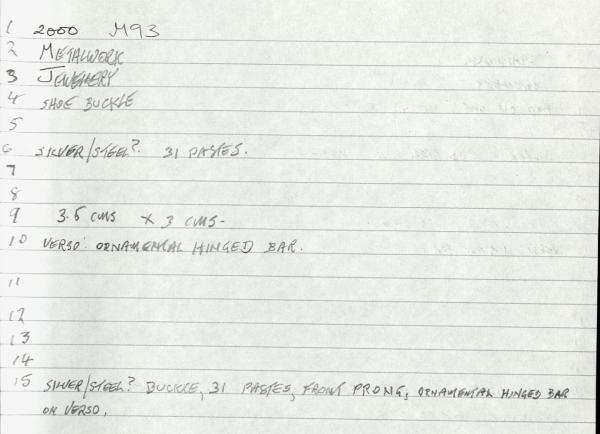 1 2000 M93
2 METALWORK
3 JEWELLERY
4 SHOE BUCKLE
5
6 SILVER/STEEL? 31 PASTES.
7
8
9 3.5 CMS X 3 CMS-
10 VERSO: ORNAMENTAL HINGED BAR.
11
12
13
14
15 SILVER/STEEL? BUCKLE, 31 PASTES, FRONT PRONG, ORNAMENTAL HINGED BAR
ON VERSO.